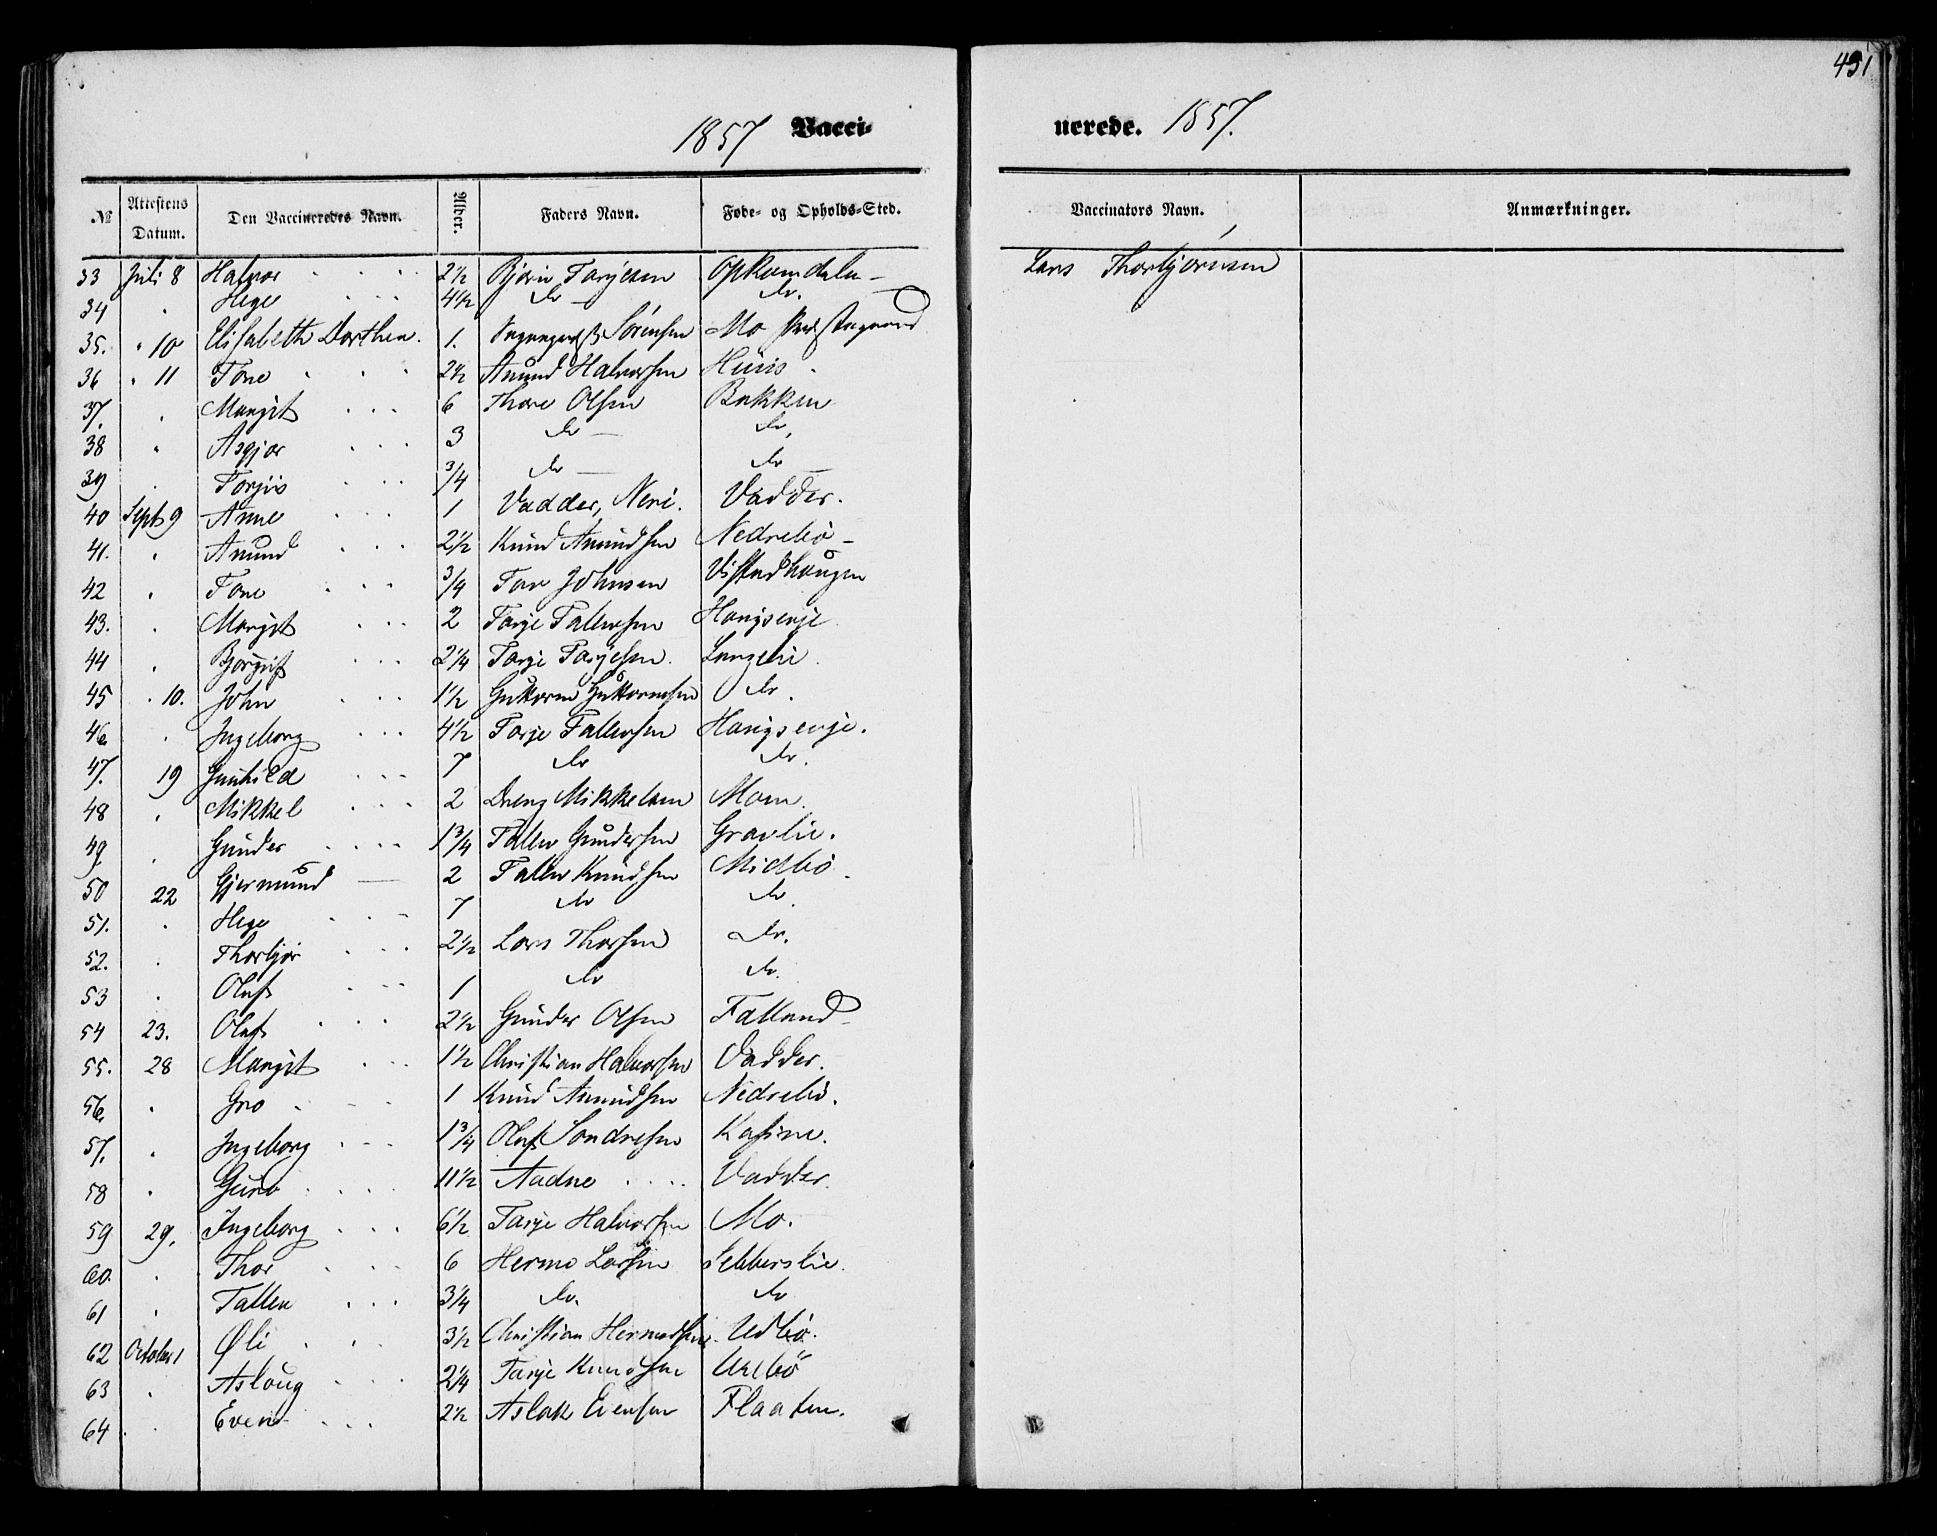 451
1857 Vacci-
nerede. 1857.
№ Attestens Datum. Den Vaccineredes Navn. Alder. Faders Navn. Føde- og Opholds-Sted. Vaccinators Navn. Anmærkninger.
33 Juli 8 Halvor 2½ Bjørn Tarjesen Opkomdalen Lars Thorbjørnsen
34 " Hege 4½ do do.
35. " 10 Elisabeth Dorthea. 1. Sørensen Mo Præstegaard
36 " 11 Tone 2½ Anund Halvorsen Huus
37. " Margit 6 Thore Olsen Bakken
38 " Asgjør 3 do do,
39 " Torjus ¾ do do
40 Septb 9 Anne 1 Vadder, Neri. Vadder.
41. " Anund 2½ Knud Anundsen Nedrebö
42 " Tone ¾ Tov Johnsen Vistadhaugen
43. " Margit 2 Tarje Tallevsen Hangsevje
44 " Bjørgulf 2¼ Tarje Tarjesen. Langelie.
45 " 10. John 1½ Guttorm Guttormsen do.
46 " Ingeborg 4½ Tarje Tallevsen Hangsevje.
47. 19 Gunhild 7 do do.
48 " Mikkel 2 Dreng Mikkelsen Moen.
49 " Gunder 1¾ Tallev Gundersen Gravlie.
50 22 Gjermund 2 Tallev Knudsen Midbö.
51. " Hege 7 do do.
52. " Thorbjör 2½ Lars Thorsen do.
53 " Oluf 1 do do.
54 23. Oluf 2½ Gunder Olsen Falland
55. 28 Margit 1½ Christian Halvorsen Vadder.
56. " Gro 1 Knud Anundsen Nedrebö.
57. " Ingeborg 1¾ Oluf Sondresen Kasine.
58 " Guro 11½ Aadne Vadder.
59 29. Ingeborg 6½ Tarje Halvorsen Mo.
60. " Thor 6 Hermo Larsen Sebberslie.
61 " Tallev 3¼ do. do
62 October 1 Øli 3½ Christian Hermodsen. Udbö.
63 " Aslaug 2¼ Tarje Knudsen Urebö
64 " Even 2½ Aslak Evensen Flaaten.